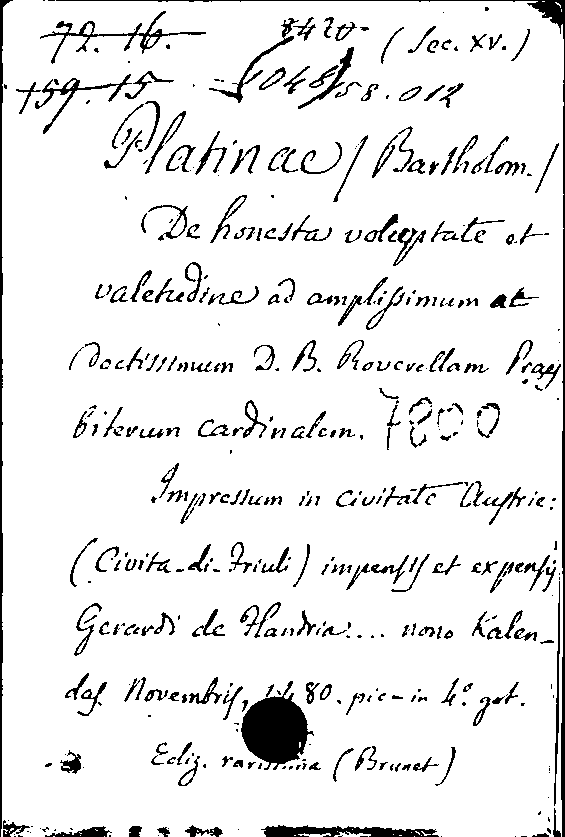 72. 16. 8420 (Sec. XV.)
159. 15 (1048) 58. 012
Platinae / Bartholom. /
De honesta voluptate et
valetudine ad amplissimum at
doctissimum D. B. Roverellam Praes
biterum cardinalem. 7800
Impressum in civitate Austrie:
(Civita-di-Friuli) impensis et expensis
Gerardi de Flandria.... nono Kalen-
das Novembris, 1480. pic- in 4º. got.
Ediz. rarissima (Brunet)